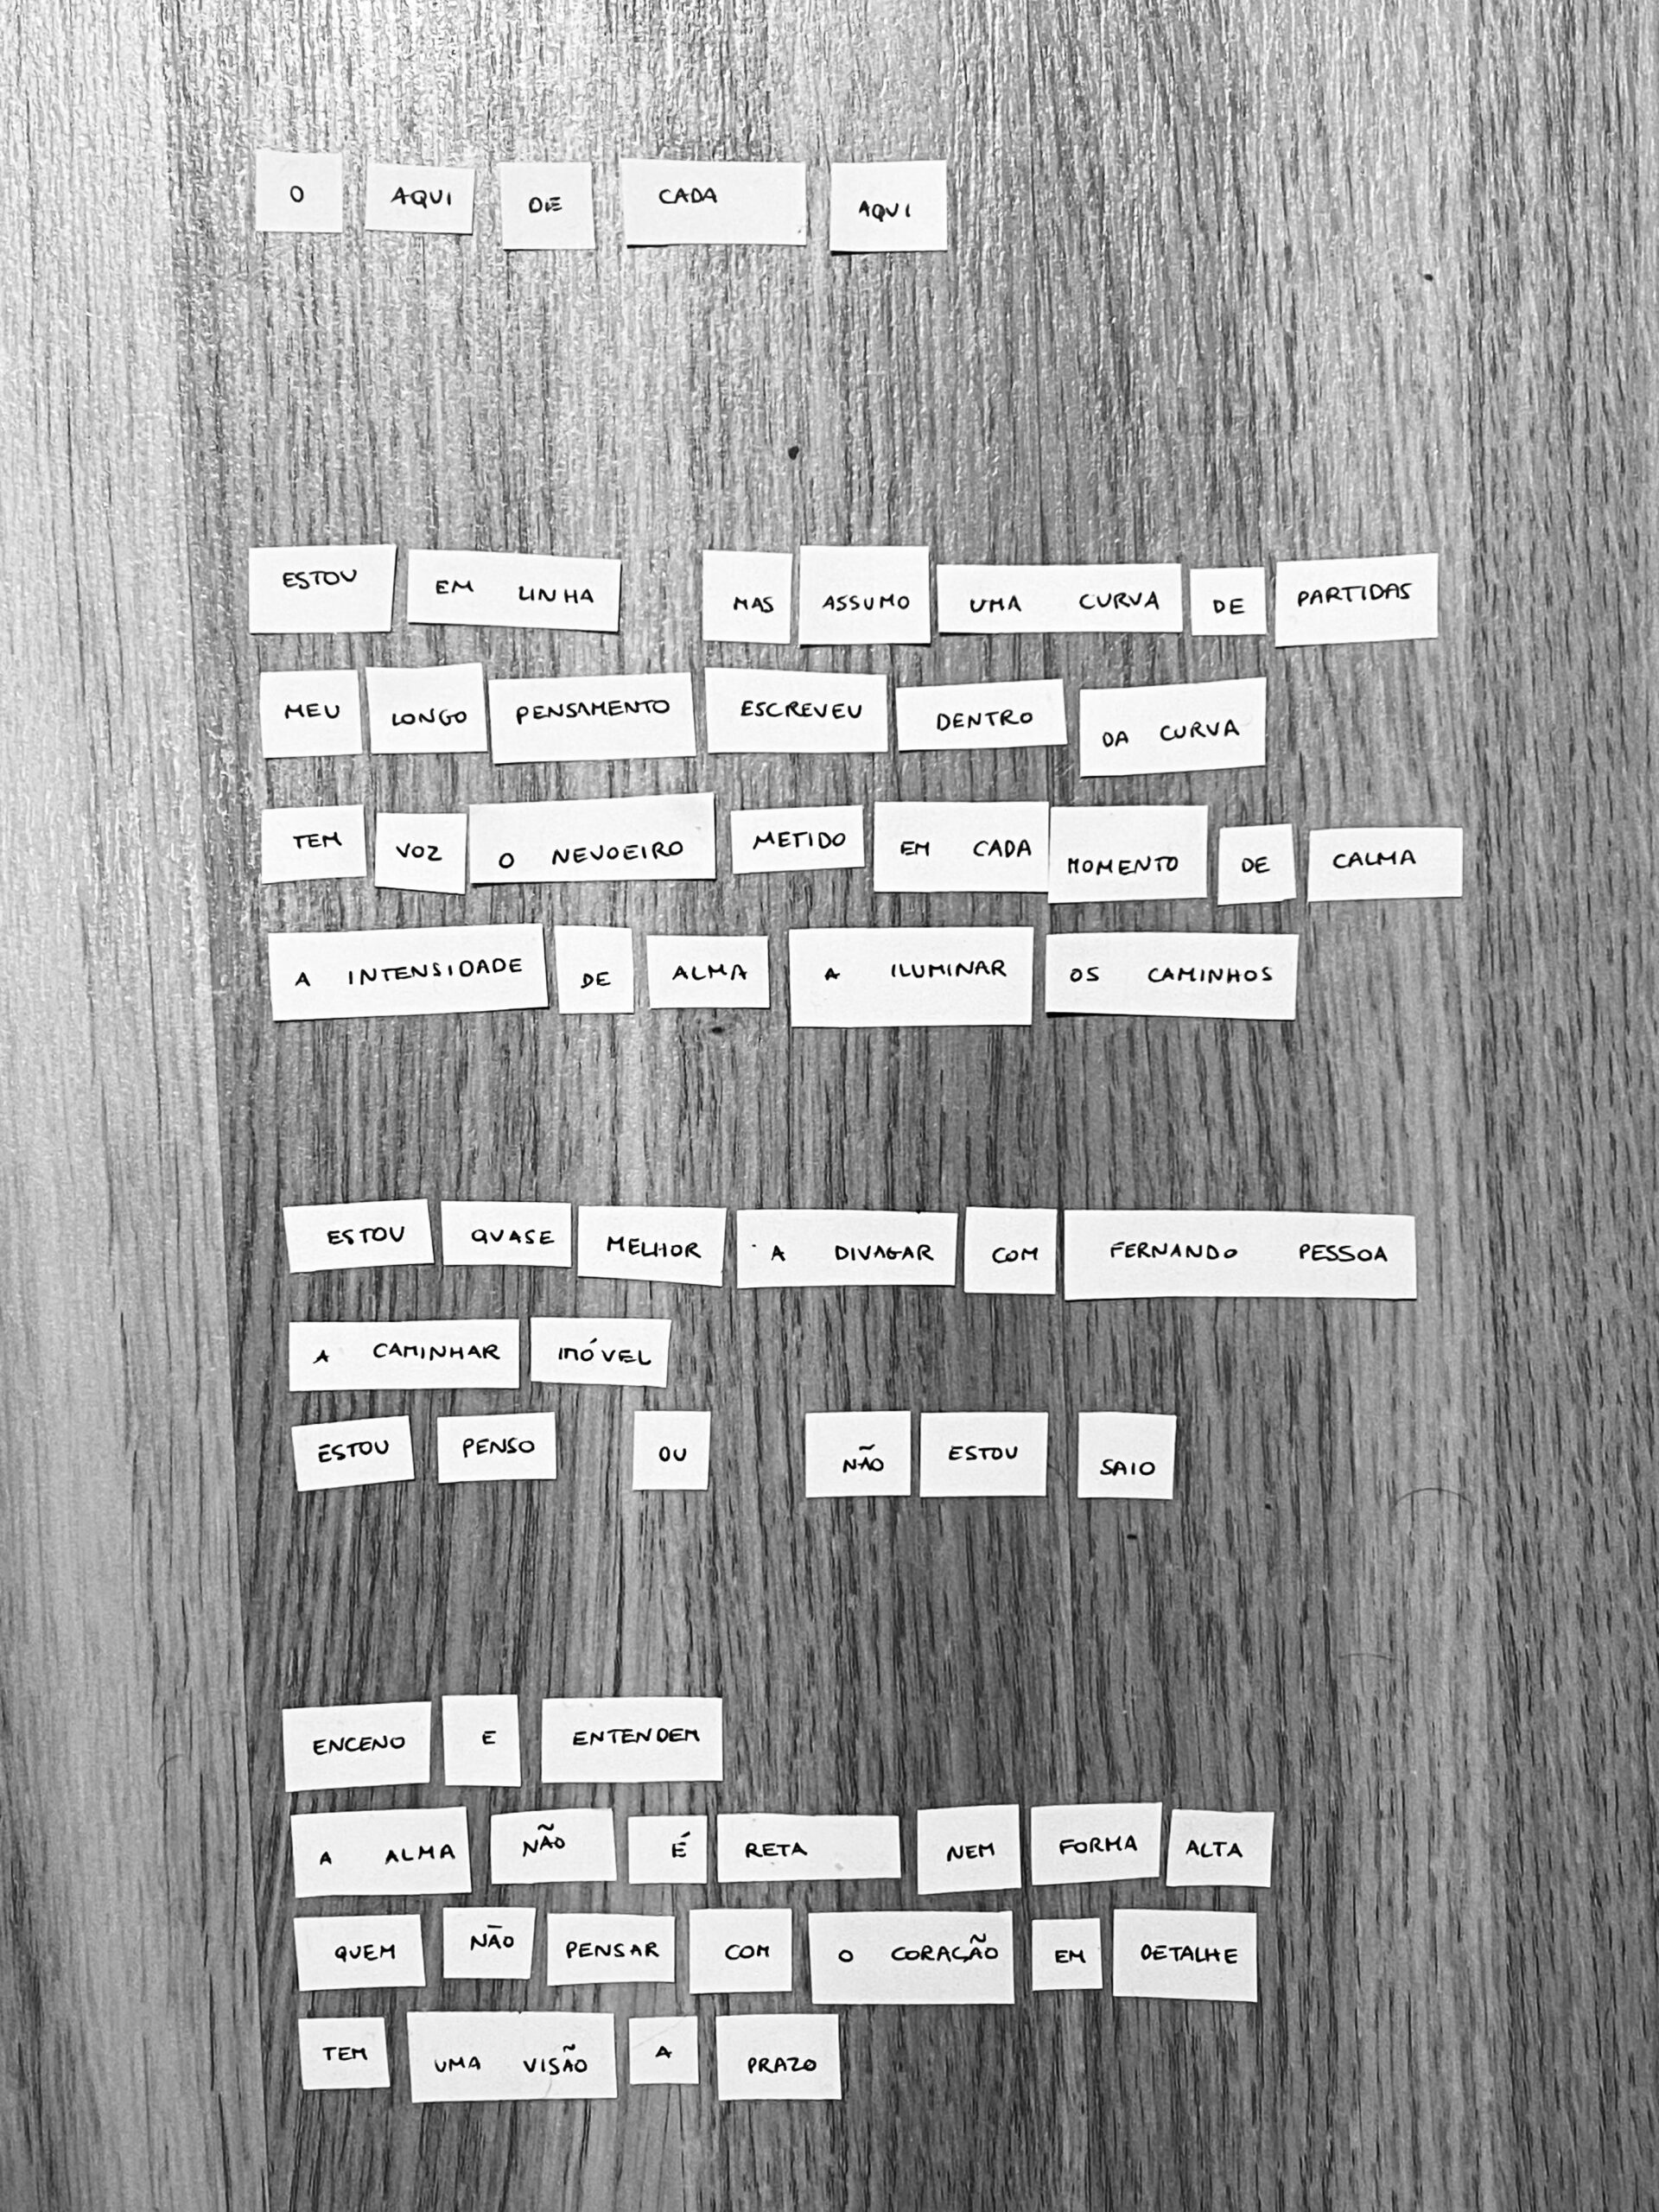 O AQUI DE CADA AQUI
ESTOU EM LINHA MAS ASSUMO UMA CURVA DE PARTIDAS
MEU LONGO PENSAMENTO ESCREVEU DENTRO DA CURVA
TEM VOZ O NEVOEIRO METIDO EM CADA MOMENTO DE CALMA
A INTENSIDADE DE ALMA A ILUMINAR OS CAMINHOS
ESTOU QUASE MELHOR A DIVAGAR COM FERNANDO PESSOA
A CAMINHAR IMÓVEL
ESTOU PENSO OU NÃO ESTOU SAIO
ENCENO E ENTENDEM
A ALMA NÃO É RETA NEM FORMA ALTA
QUEM NÃO PENSAR COM O CORAÇÃO EM DETALHE
TEM UMA VISÃO A PRAZO